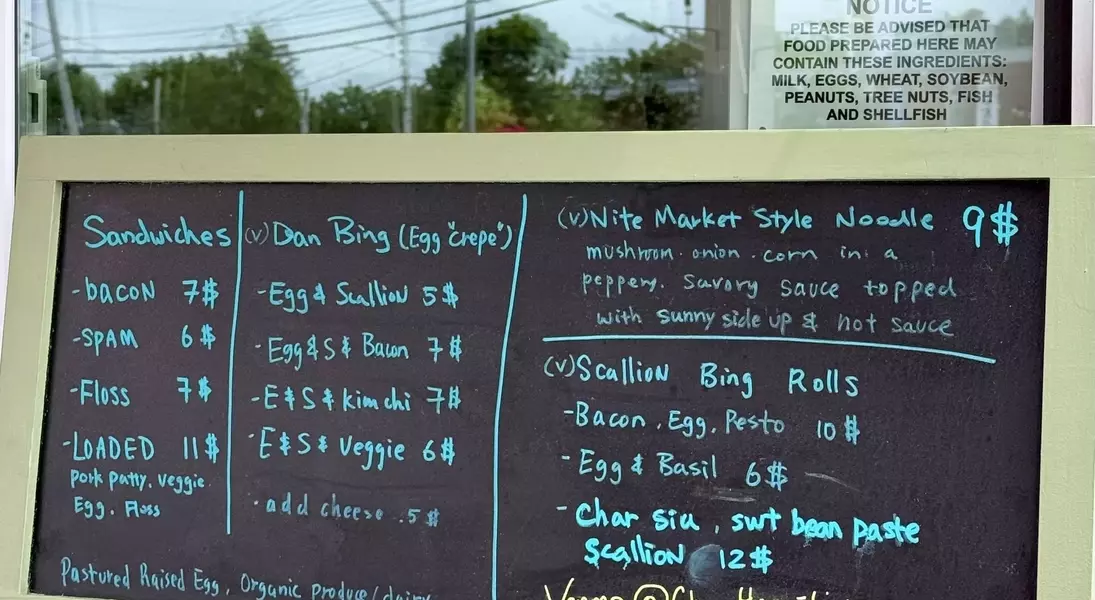 NOTICE
PLEASE BE ADVISED THAT
FOOD PREPARED HERE MAY
CONTAIN THESE INGREDIENTS:
MILK, EGGS, WHEAT, SOYBEAN,
PEANUTS, TREE NUTS, FISH
AND SHELLFISH
Sandwiches
-bacon 7$
-SPAM 6$
-Floss 7$
-LOADED 11$
pork patty. veggie.
Egg. Floss
(v) Dan Bing (Egg "crepe")
-Egg & Scallion 5$
-Egg & S & Bacon 7$
-E & S & kimchi 7$
-E & S & veggie 6$
-add cheese .5$
Pastured Raised Egg, Organic produce/dairy
(v) Nite Market Style Noodle 9$
mushroom. onion. corn in a
peppery. Savory sauce topped
with sunny side up & hot sauce
(v) Scallion Bing Rolls
-Bacon. Egg. Pesto 10$
-Egg & Basil 6$
-Char siu, swt bean paste
Scallion 12$